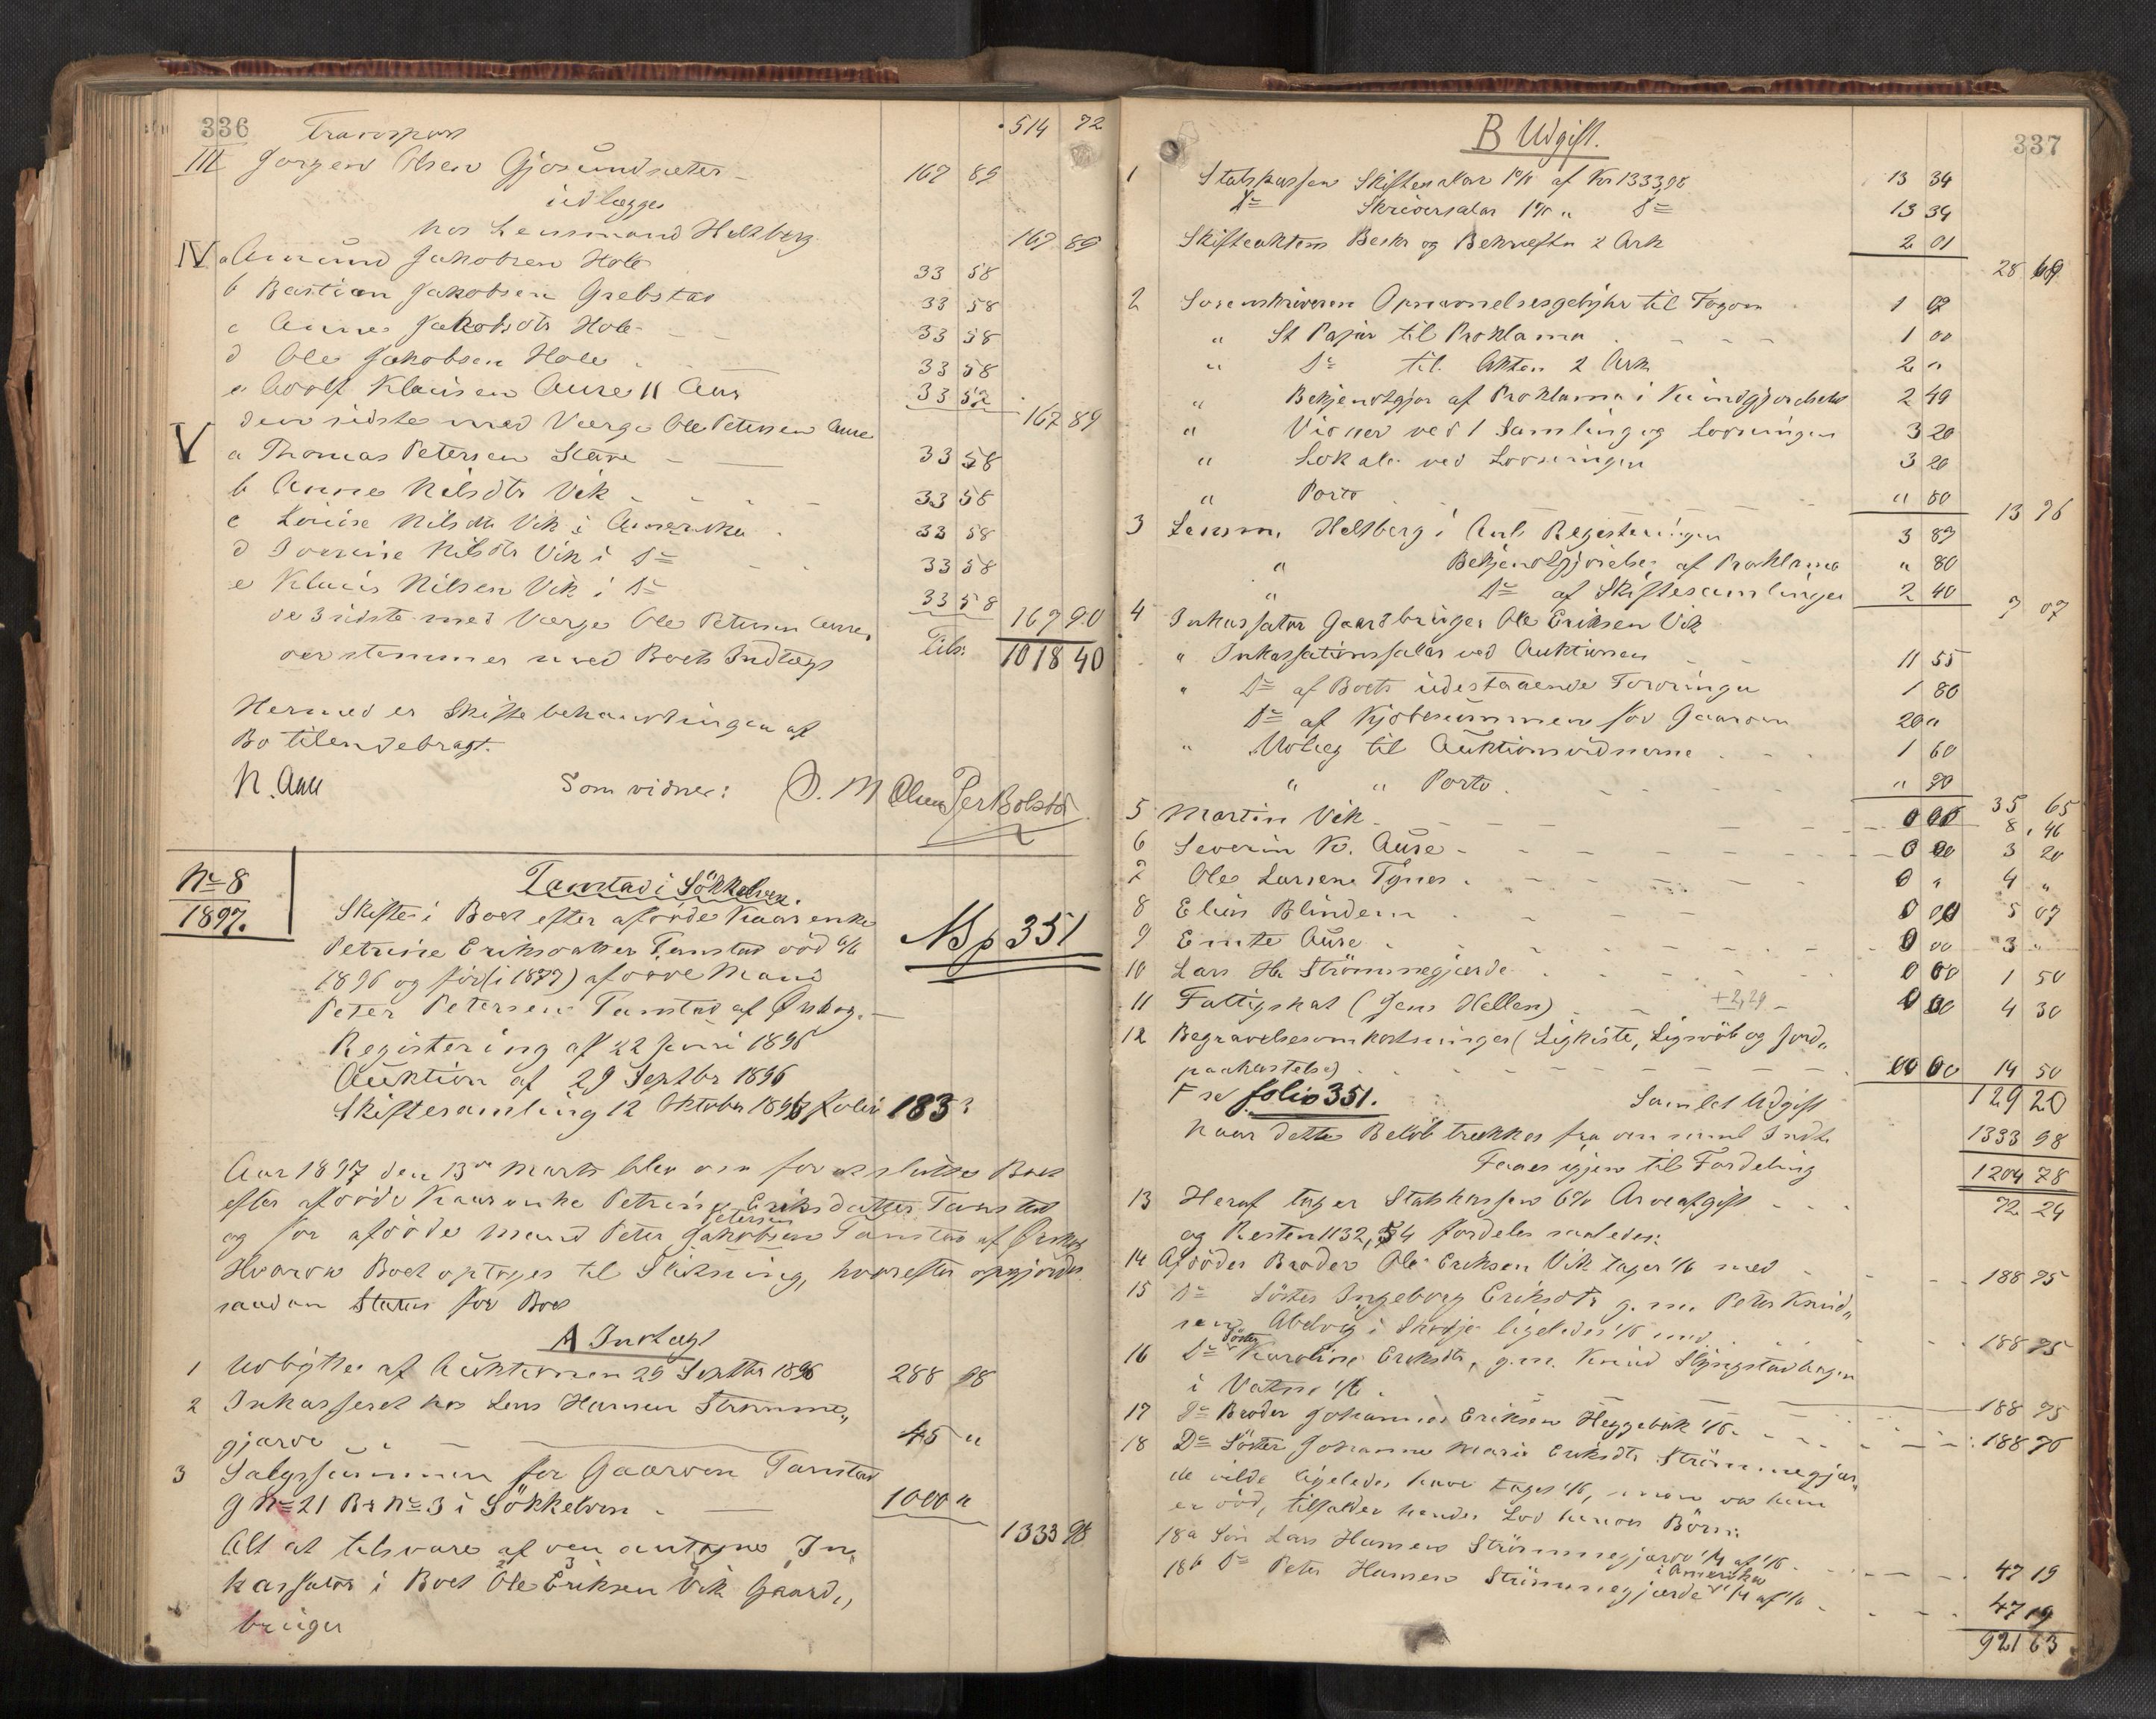 336 Transport 514 72
III Jørgen Olsen Gjøsundsæter 167 89
udlægges
hos Lensmand Heltberg 167 89
IV a Amund Jakobsen Hole 33 58
b Bastian Jakobsen Grebstad 33 58
c Anne Jakobsdtr Hole 33 58
d Ole Jakobsen Hole 33 58
e Adolf Klausen Aure 11 Aar 33 57
den sidste med Værge Ole Petersen Aure 167 89
V a Thomas Petersen 33 58
b Anne Nilsdtr Vik 33 58
c Louise Nilsdtr Vik i Amerika 33 58
d Nilsdtr Vik i Do 33 58
e Klaus Nilsen Vik i Do 33 58
de 3 sidste med Værge Ole Petersen Aure 167 90
overstemmer med Boets Indtægt Tils: 1018 40
Hermed er Skiftebehandlingen af
Bo tilendebragt.
N. Aall Som vidner: O. M Olsen Per Bolstad
No 8
1897.
Tamstad i Søkkelven.
Skifte i Boet efter afdøde Kaarenke
Petrine Eriksdatter Tamstad død
1896 og før (i 1877) afdøde Mand
Peter Petersen Tamstad af Ørskog.
NB p 351
Registering af 22 Juni 1896
Auktion af 29 Septbr 1896
Skiftesamling 12 Oktober 1896 folio 183
Aar 1897 den 13de Marts blev den for at slutte Boet
efter afdøde Kaarenke Petrine Eriksdatter Tamstad
og før afdøde Mand Peter Petersen Jakobsen Tamstad af Ørskog
Hvorom Boet optoges til Slutning, hvorefter opgjordes
saadan Status for Boet
A Indtægt
1 Udbytte af Auktionen 29 Septbr 1896 288 98
2 Inkasseret hos Lars Hansen Strømme„
gjærde 45 "
3 Salgssummen for Gaarden Tamstad
g No 21 Br No 3 i Søkkelven 1000 "
1333 98
Alt at tilsvare af den antagne In„
kassator i Boet Ole Eriksen Vik Gaard„
bruger
B Udgift. 337
1 Statskassen Skiftesalar 1% af Kr 1333,98 13 34
Do Skriversalar 1% " Do 13 34
Skifteaktens Beskr og Bekræfte 2 Ark 2 01
28 69
2 Sorenskriveren Opnævnelsesgebyhr til Fogden 1 07
" St Papir til Proklama 1 00
" Do til Akten 2 Ark 2 "
" Bekjendtgjør af Proklama i Kundgjørelsest 2 49
" Vidner ved 1 Samling og Lodningen 3 20
" Lokale ved Lodningen 3 20
" Porto " 80
13 76
3 Lensm. Heltberg i Anl. Registeringen 3 87
" Bekjendtgjørelse af Proklama " 80
" Do af Skiftesamlinger 2 40
7 07
4 Inkassator Gaardbruger Ole Eriksen Vik
" Inkassationssalar ved Auktionen 11 55
" Do af Boets udestaaende Fordringer 1 80
Do af Kjøbesummen for Gaarden 20 "
" Udlæg til Auktionsvidnerne 1 60
" " Porto " 70
35 65
5 Martin Vik 0 00 8, 46
6 Severin K. Aure 0 00 3 20
7 Ole Larsen Tynes 0 " 4 "
8 Elias Blindem 0 00 5 07
9 Emte Aure 0 00 3 "
10 Lars H. Strømmegjærde 0 00 1 50
11 Fattigskat (Jens Hellen) +2,29 0 00 4 30
12 Begravelsesomkostninger (Ligkiste, Ligsvøb og Jord„
paakastelse) 00 00 14 50
F se folio 351. Samlet Udgift 129 20
Naar dette Beløb trækkes fra den saml Indt. 1333 98
Faaes igjen til Fordeling 1204 78
13 Heraf tager Statskassen 6% Arveafgift 72 24
og Resten 1132,54 fordeles saaledes:
14 Afdødes Broder Ole Eriksen Vik tager 1/6 med 188 75
15 Do Søster Ingeborg Eriksdtr g. m. Peter Knud„
sen i Skodje ligeledes 1/6 med 188 75
16 Do Søster Karoline Eriksdtr, g. m. Knud Slyngstadhagen
i Vatne 1/6. 188 75
17 Do Broder Johannes Eriksen Heggebak 1/6 188 76
18 Do Søster Johanne Marie Eriksdtr Strømmegjær„
de vilde ligeledes have taget 1/6, men da hun
er død, tilfalder hendes Lod hendes Børn:
18a Søn Lars Hansen Strømmegjærde 1/4 af 1/6 47 19
18b Do Peter Hansen Strømmegjærde i Amerika 1/4 af 1/6 47 19
921 63